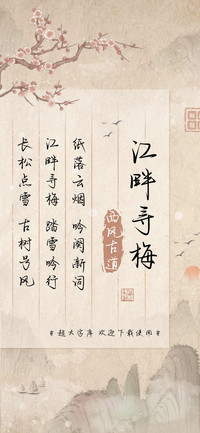 江畔寻梅
西风古道
纸落云烟 吟阕新词
江畔寻梅 踏雪吟行
长松点雪 古树号风
题大字库 欢迎下载使用